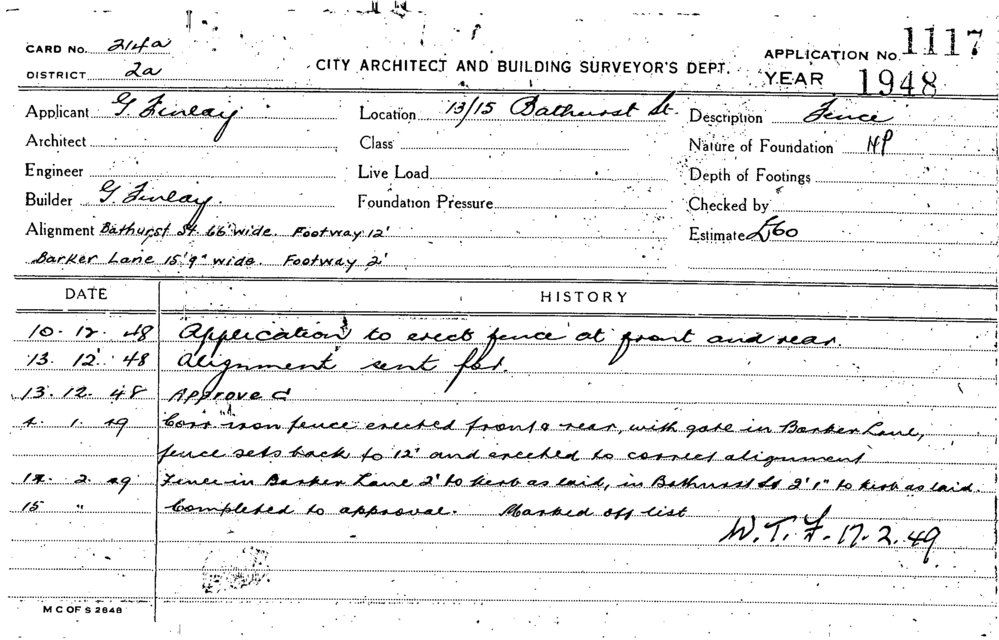 CARD No. 214a
DISTRICT 2a
CITY ARCHITECT AND BUILDING SURVEYOR'S DEPT.
APPLICATION No. 1117
YEAR 1948
Applicant G. Finlay
Location 13/15 Bathurst St.
Description Fence
Architect
Class
Nature of Foundation NP
Engineer
Live Load
Depth of Footings
Builder G. Finlay.
Foundation Pressure
Checked by
Alignment Bathurst St. 66' wide. Footway 12'
Estimate £60
Barker Lane 15'9" wide. Footway 2'
DATE HISTORY
10. 12. 48 Application to erect fence at front and rear.
13. 12. 48 Alignment sent for.
13. 12. 48 Approved
4. 1. 49 Corr iron fence erected front & rear, with gate in Barker Lane,
fence sets back to 12' and erected to correct alignment
2. 49 Fence in Barker Lane 2' to kerb as laid, in Bathurst St 2'1" to kerb as laid.
15 " Completed to approval. Marked off list
W. T. F. 17. 2. 49
M C OF S 2648